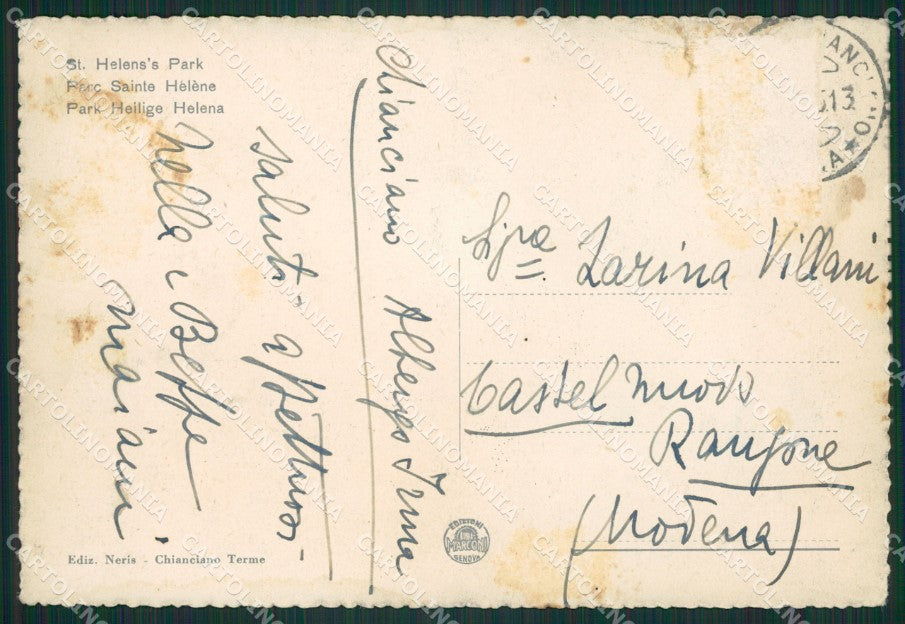 St. Helens's Park
Parc Sainte Hélène
Park Heilige Helena
Chianciano Albergo Irma
saluti affettuosi
Nella e Beppe
Mariani
Sig.ra Zarina Villani
Castelnuovo
Rangone
(Modena)
EDIZIONI
MARCONI
GENOVA
Ediz. Neris - Chianciano Terme
CARTOLINOMANIA